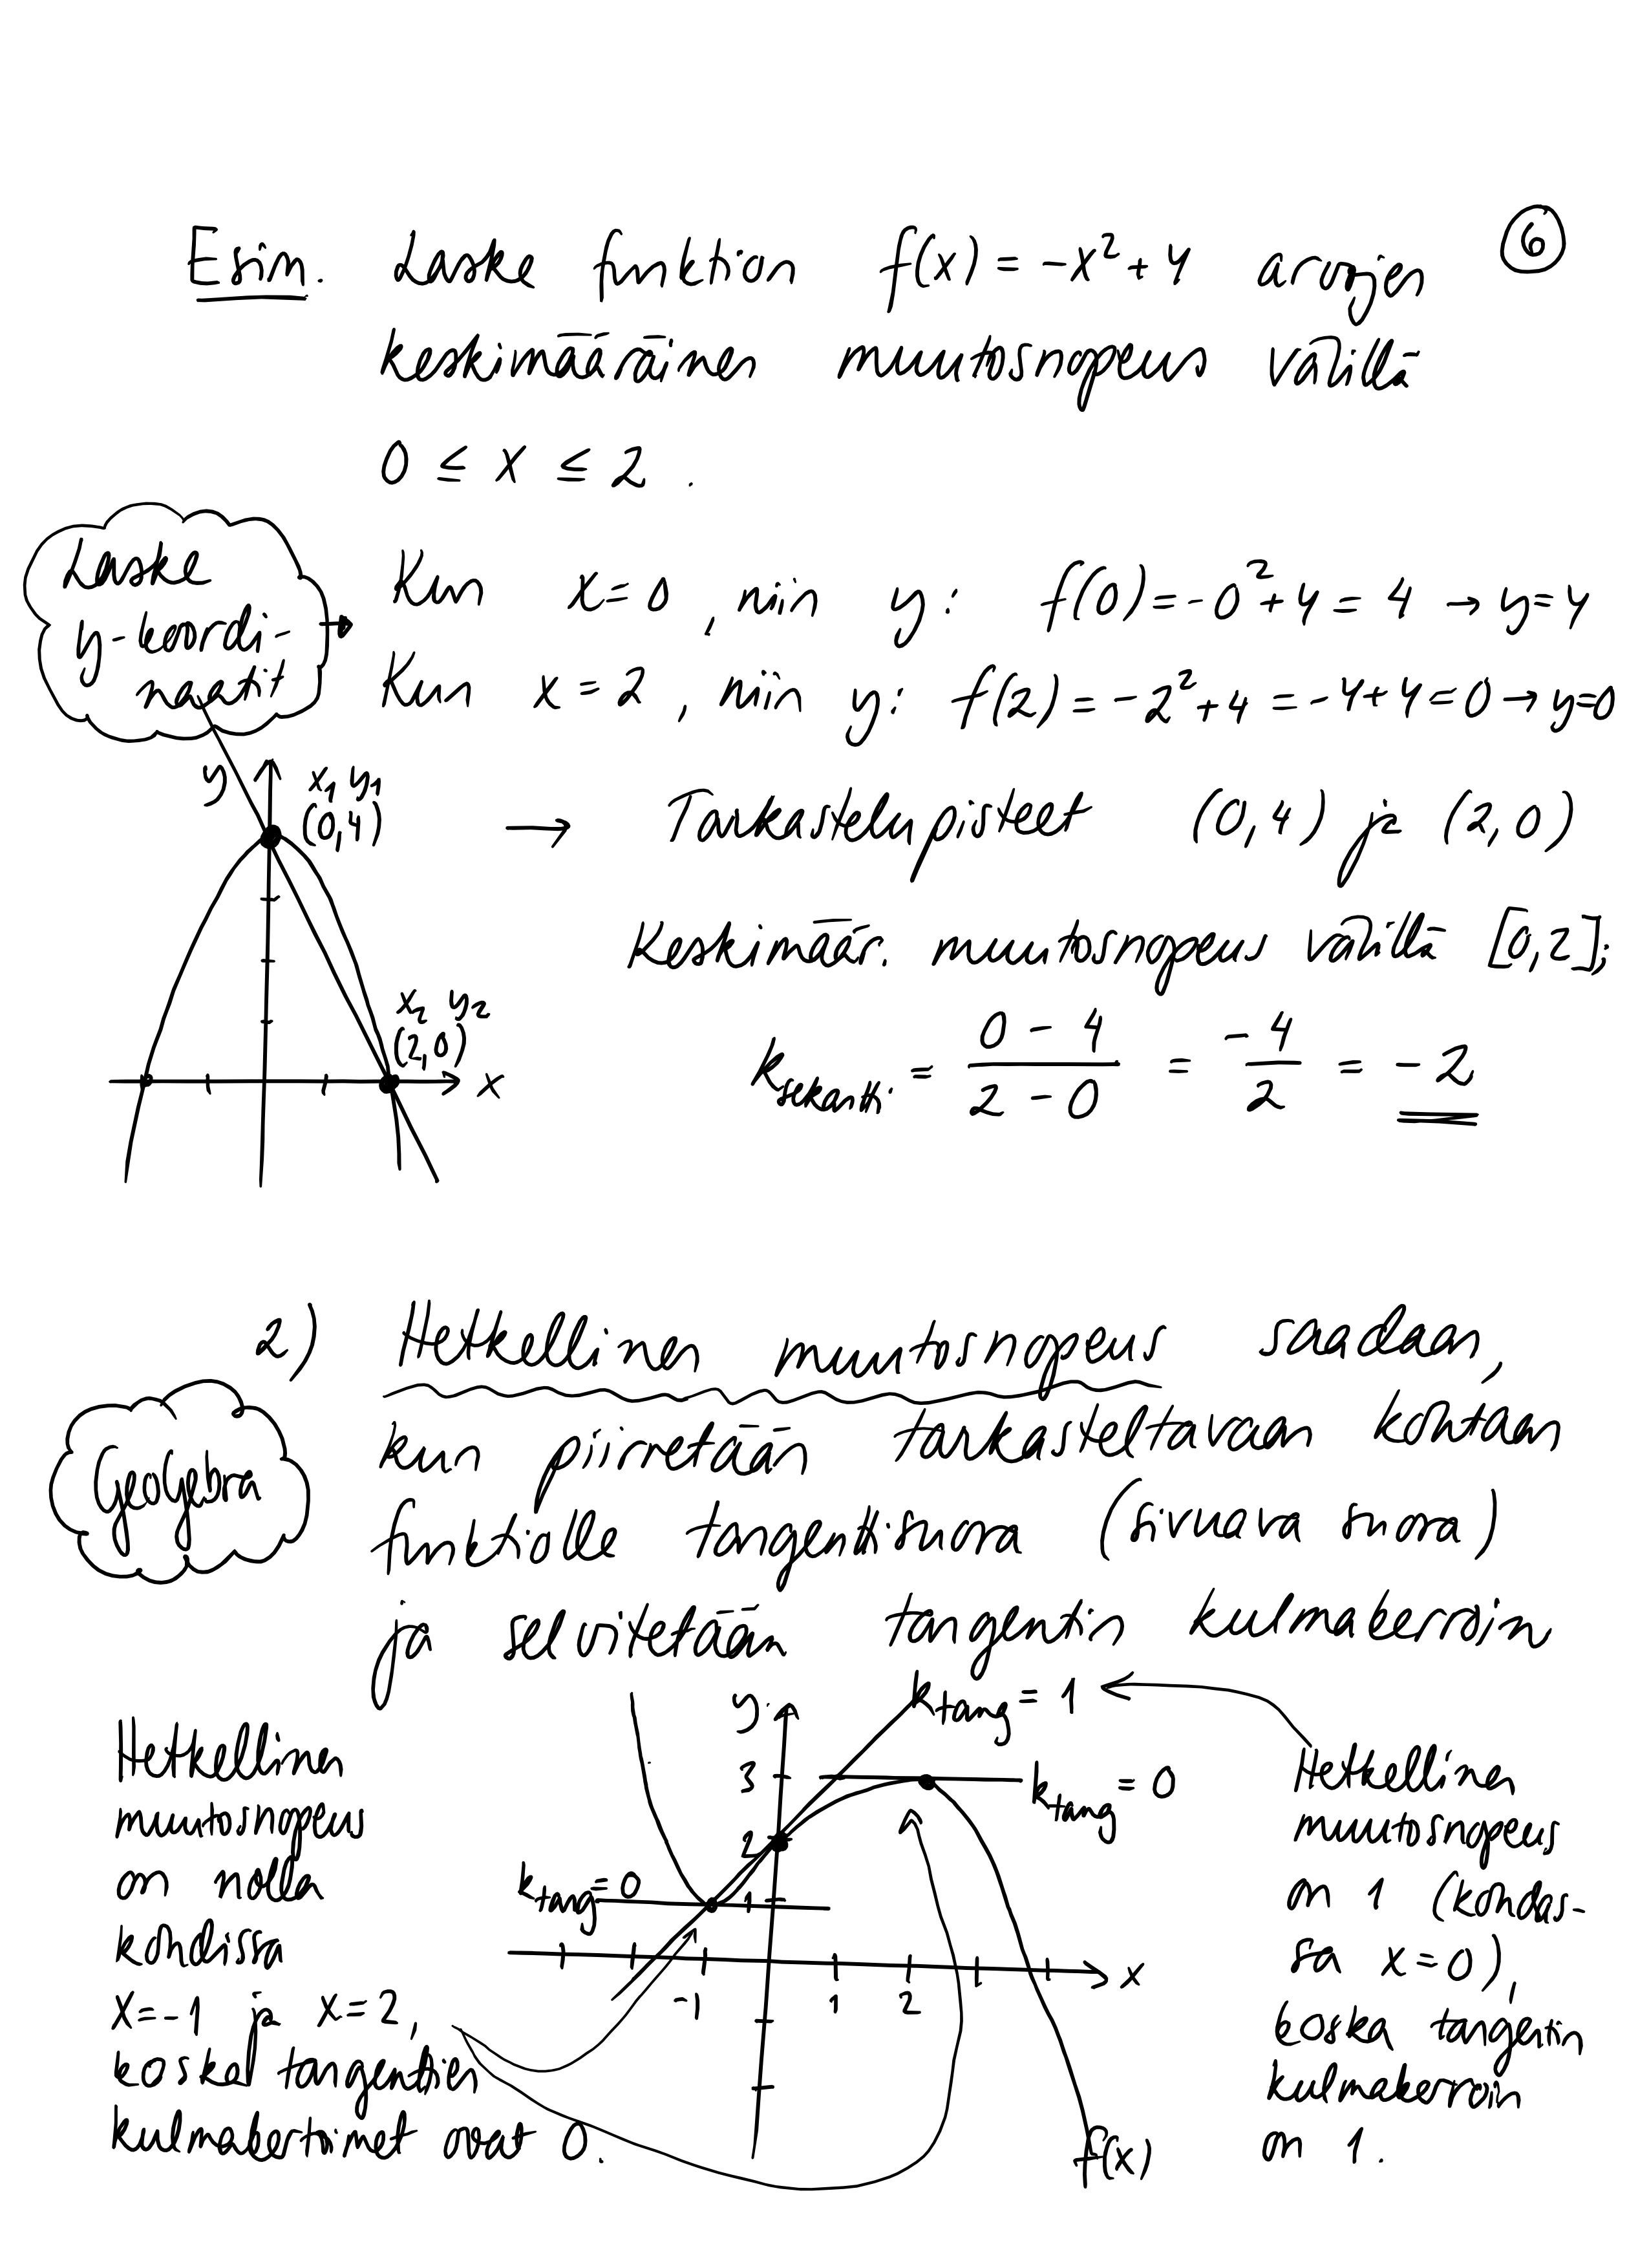 6
Esim. Laske funktion f(x) = -x² + 4 arvojen
keskimääräinen muutosnopeus välillä
0 ≤ x ≤ 2 .
Laske
y-koordi-
naatit
Kun x=0, niin y: f(0)=-0²+4 = 4 → y=4
Kun x=2, niin y: f(2)=-2²+4=-4+4=0 → y=0
y
x₁ y₁
(0,4)
x₂ y₂
(2,0)
x
→ Tarkastelupisteet (0,4) ja (2,0)
Keskimäär. muutosnopeus välillä [0,2]:
k_sekantti = (0-4)/(2-0) = -4/2 = -2
2) Hetkellinen muutosnopeus saadaan,
kun piirretään tarkasteltavaan kohtaan
funktiolle tangenttisuora (sivuava suora)
ja selvitetään tangentin kulmakerroin
GeoGebra
Hetkellinen
muutosnopeus
on nolla
kohdissa
x=-1 ja x=2,
koska tangenttien
kulmakertoimet ovat 0.
y
k_tang = 1
3
k_tang = 0
2
k_tang = 0
1
x
-1 1 2
f(x)
Hetkellinen
muutosnopeus
on 1 (kohdas-
sa x=0),
koska tangentin
kulmakerroin
on 1.